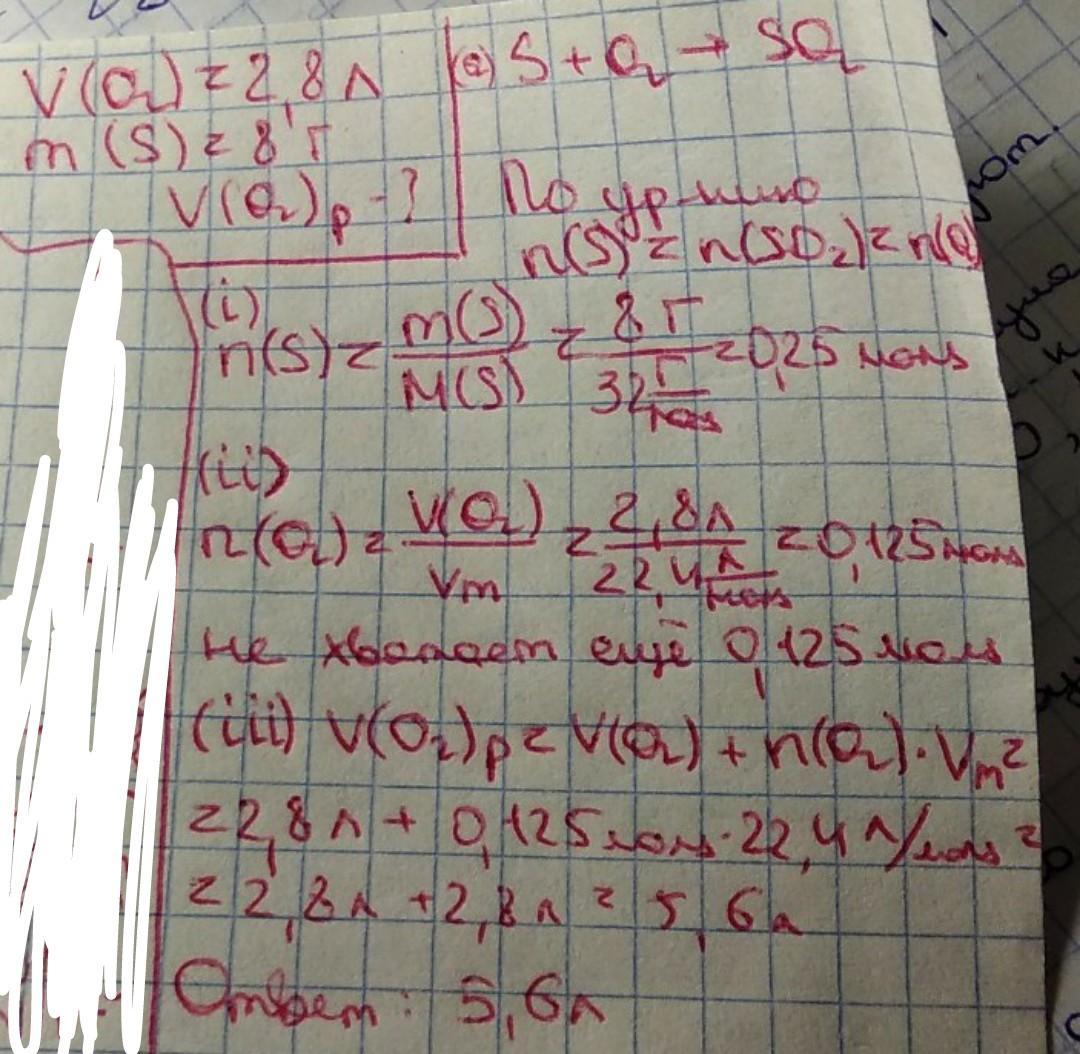 V(O₂) = 2,8 л
m (S) = 8 г
V(O₂)р - ?
(a) S + O₂ → SO₂
По ур-нию
n(S) = n(SO₂) = n(O₂)
(i)
n(S) = m(S)/M(S) = 8 г/32 г/моль = 0,25 моль
(ii)
n(O₂) = V(O₂)/Vm = 2,8 л/22,4 л/моль = 0,125 моль
не хватает ещё 0,125 моль
(iii) V(O₂)р = V(O₂) + n(O₂) · Vm =
= 2,8 л + 0,125 моль · 22,4 л/моль =
= 2,8 л + 2,8 л = 5,6 л
Ответ: 5,6 л